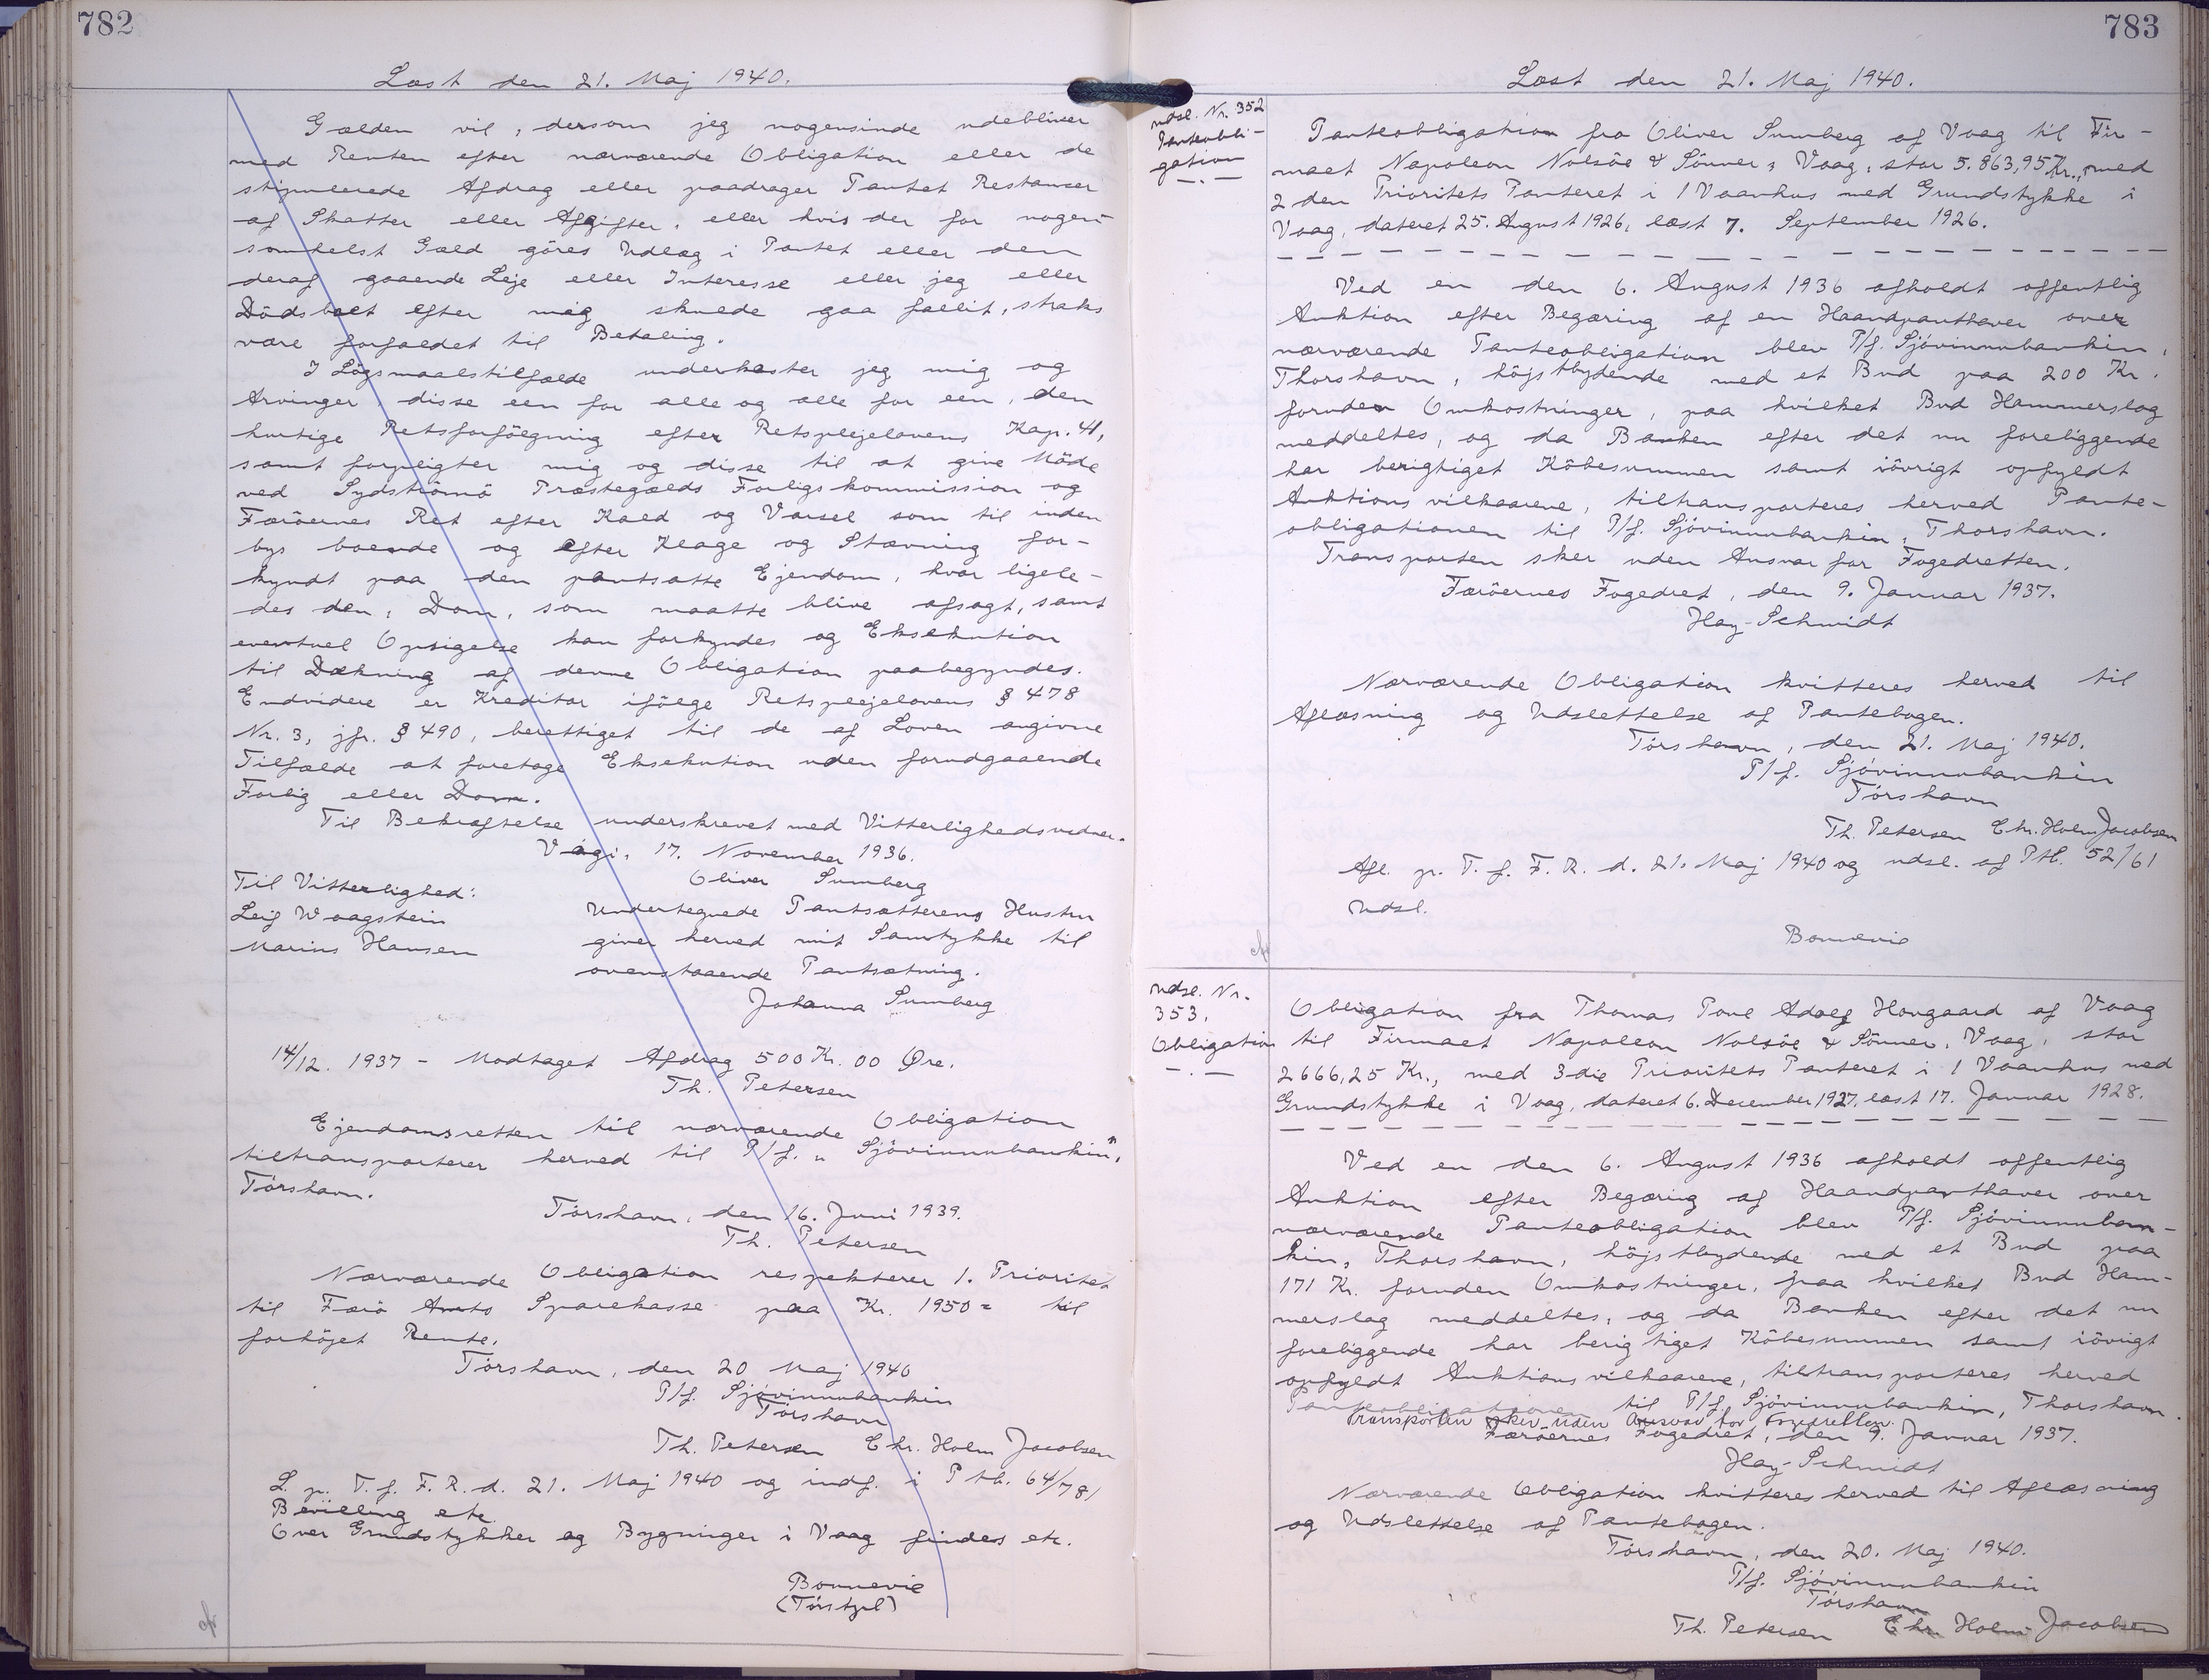 782
Læst den 21. Maj 1940.
Gælden vil, dersom jeg nogensinde udebliver
med Renten efter nærværende Obligation eller de
stipulerede Afdrag eller paadrager Pantet Restancer
af Skatter eller Afgifter, eller hvis der for nogen-
somhelst Gæld göres Udlæg i Pantet eller den
deraf gaaende Leje eller Interesse eller jeg eller
Dödsboet efter mig skulde gaa fallit, straks
være forfaldet til Betaling.
I Lögsmaalstilfælde underkaster jeg mig og
Arvinger disse een for alle og alle for een, den
hurtige Retsforfölgning efter Retsplejelovens Kap. 41,
samt forpligter mig og disse til at give Möde
ved Sydströmö Præstegælds Forligskommission og
Færöernes Ret efter Kald og Varsel som til inden
bys boende og efter Klage og Stævning for-
kyndt paa den pantsatte Ejendom, hvor ligele-
des den, Dom, som maatte blive afsagt, samt
eventuel Opsigelse kan forkyndes og Eksekution
til Dækning af denne Obligation paabegyndes.
Endvidere er Kreditor ifölge Retsplejelovens § 478
Nr. 3, jfr. § 490, berettiget til de af Loven angivne
Tilfælde at foretage Eksekution uden forudgaaende
Forlig eller Dom.
Til Bekræftelse underskrevet med Vitterlighedsvidner.
Vági, 17. November 1936.
Oliver Sumberg
Til Vitterlighed:
Leif Waagstein
Marius Hansen
Undertegnede Pantsætterens Hustru
giver herved mit Samtykke til
ovenstaaende Pantsætning.
Johanna Sumberg
14/12. 1937 - Modtaget Afdrag 500 Kr. 00 Øre.
Th. Petersen
Ejendomsretten til nærværende Obligation
tiltransporterer herved til P/f. „Sjóvinnubankin",
Tórshavn.
Tórshavn, den 16. Juni 1939.
Th. Petersen
Nærværende Obligation respekterer 1. Prioritet
til Færö Amts Sparekasse paa Kr. 1950 = til
forhöjet Rente.
Tórshavn, den 20 Maj 1940
P/f. Sjóvinnubankin
Tórshavn
Th. Petersen Chr. Holm Jacobsen
L. p. T. f. F. R. d. 21. Maj 1940 og indf. i Ptb. 64/781
Bevilling etc.
Over Grundstykker og Bygninger i Vaag findes etc.
Bonnevie
783
Læst den 21. Maj 1940.
Udsl. Nr. 352
Panteobli-
gation
Panteobligation fra Oliver Sumberg af Vaag til Fir-
maet Napoleon Nolsöe & Sönner, Vaag, stor 5.863,95 Kr., med
2den Prioritets Panteret i 1 Vaanhus med Grundstykke i
Vaag, dateret 25. August 1926, læst 7. September 1926.
Ved en den 6. August 1936 afholdt offentlig
Auktion efter Begæring af en Haandpanthaver over
nærværende Panteobligation blev P/f. Sjóvinnubankin,
Thorshavn, höjstbydende med et Bud paa 200 Kr.
foruden Omkostninger, paa hvilket Bud Hammerslag
meddeltes, og da Banken efter det nu foreliggende
har berigtiget Köbesummen samt iövrigt opfyldt
Auktionsvilkaarene, tiltransporteres herved Pante-
obligationen til P/f. Sjóvinnubankin, Thorshavn.
Transporten sker uden Ansvar for Fogedretten.
Færöernes Fogedret, den 9. Januar 1937.
Hay-Schmidt
Nærværende Obligation kvitteres herved til
Aflæsning og Udslettelse af Pantebogen.
Tórshavn, den 21. Maj 1940.
P/f. Sjóvinnubankin
Tórshavn
Th. Petersen Chr. Holm Jacobsen
Afl. p. T. f. F. R. d. 21. Maj 1940 og udsl. af Ptb. 52/61
Udsl.
Bonnevie
Udsl. Nr.
353.
Obligation
Obligation fra Thomas Poul Adolf Hovgaard af Vaag
til Firmaet Napoleon Nolsöe & Sönner, Vaag, stor
2666,25 Kr., med 3die Prioritets Panteret i 1 Vaanhus med
Grundstykke i Vaag, dateret 6. December 1927, læst 17. Januar 1928.
Ved en den 6. August 1936 afholdt offentlig
Auktion efter Begæring af Haandpanthaver over
nærværende Panteobligation blev P/f. Sjóvinnuban-
kin, Thorshavn, höjstbydende med et Bud paa
171 Kr. foruden Omkostninger, paa hvilket Bud Ham-
merslag meddeltes, og da Banken efter det nu
foreliggende har berigtiget Köbesummen samt iövrigt
opfyldt Auktionsvilkaarene, tiltransporteres herved
Panteobligationen til P/f. Sjóvinnubankin, Thorshavn.
Transporten sker uden Ansvar for Fogedretten.
Færöernes Fogedret, den 9. Januar 1937.
Hay-Schmidt
Nærværende Obligation kvitteres herved til Aflæsning
og Udslettelse af Pantebogen.
Tórshavn, den 20. Maj 1940.
P/f. Sjóvinnubankin
Tórshavn
Th. Petersen Chr. Holm Jacobsen